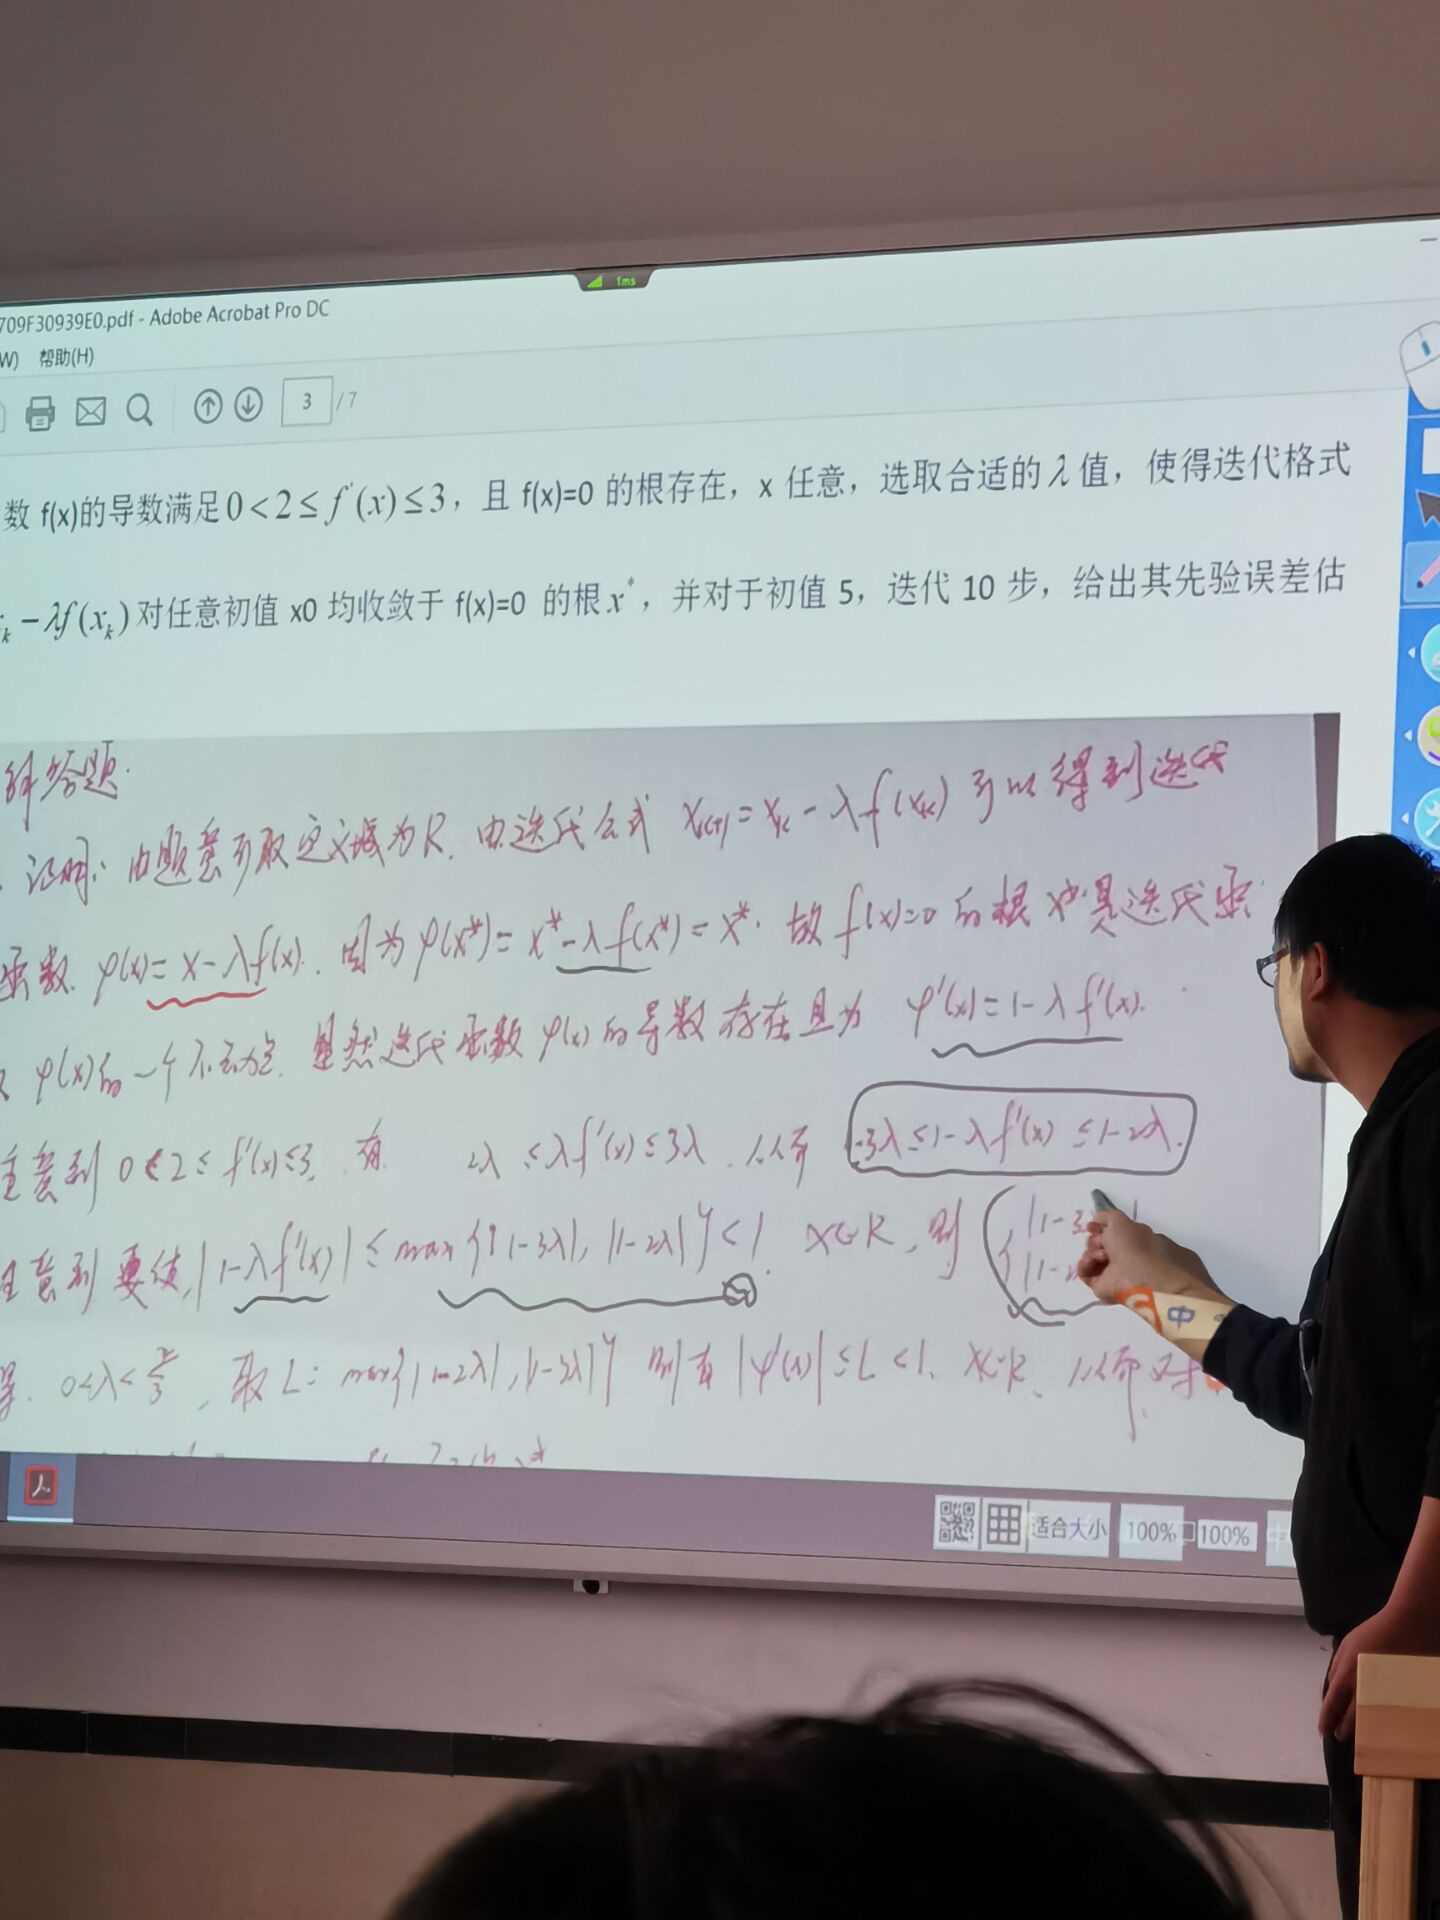 709F30939E0.pdf - Adobe Acrobat Pro DC
W) 帮助(H)
3 / 7
1ms
数 f(x)的导数满足0<2≤f'(x)≤3，且 f(x)=0 的根存在，x 任意，选取合适的λ值，使得迭代格式
k −λf(xk)对任意初值 x0 均收敛于 f(x)=0 的根x*，并对于初值 5，迭代 10 步，给出其先验误差估
解答题.
证明: 由题意可取定义域为R. 由迭代公式 xk+1=xk-λf(xk) 可以得到迭代
函数. φ(x)=x-λf(x). 因为φ(x*)=x*-λf(x*)=x*. 故f(x)=0的根x*是迭代函
φ(x)的一个不动点. 显然迭代函数φ(x)的导数存在且为 φ'(x)=1-λf'(x).
注意到 0<2≤f'(x)≤3, 有 2λ≤λf'(x)≤3λ, 从而 -3λ≤1-λf'(x)≤1-2λ.
注意到要使, |1-λf'(x)|≤max{|1-3λ|, |1-2λ|}<1, x∈R, 则 { |1-3
|1-2
得. 0<λ<2/3, 取 L= max{|1-2λ|, |1-3λ|} 则有 |φ'(x)|≤L<1, x∈R, 从而 对
适合大小 100% 100% 中
中